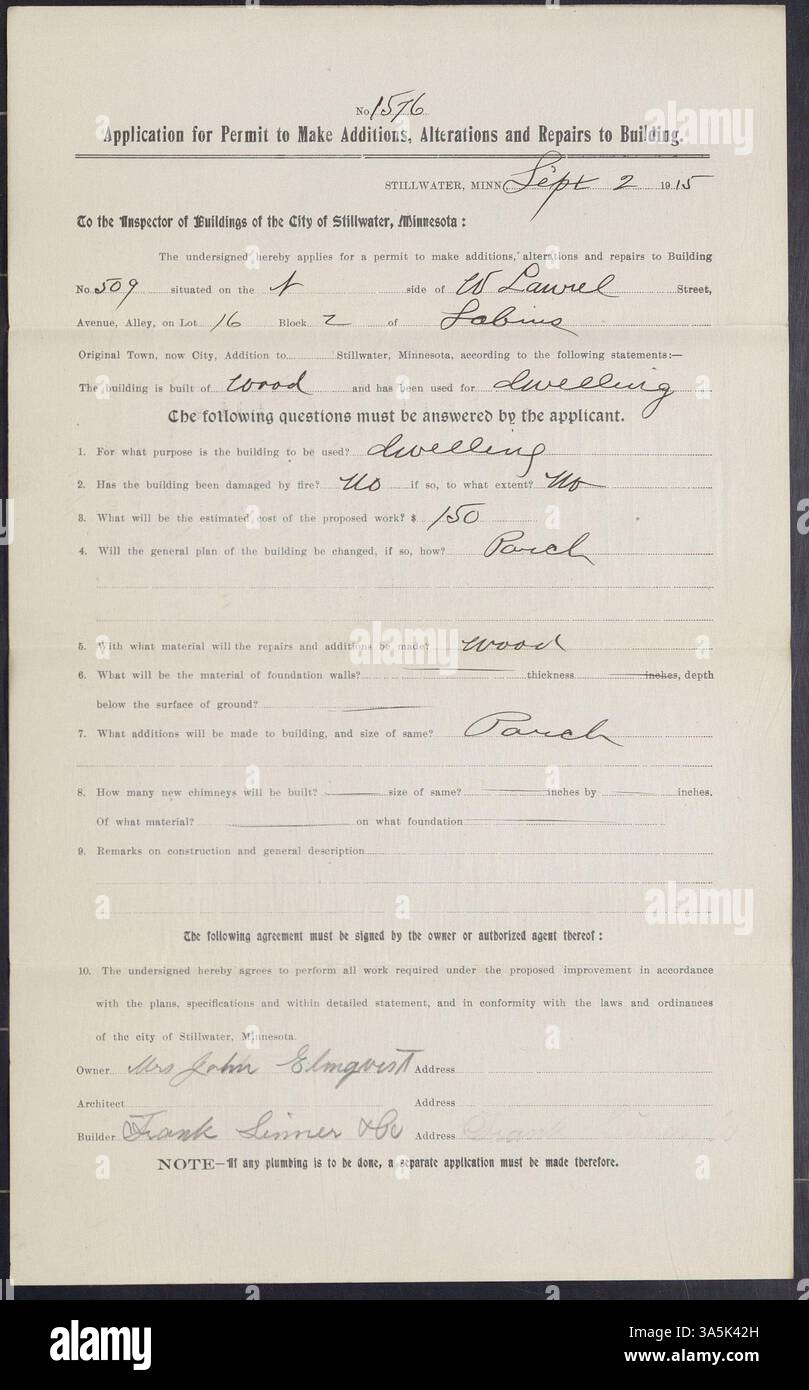 No. 1576
Application for Permit to Make Additions, Alterations and Repairs to Building.
STILLWATER, MINN., Sept 2 1915
To the Inspector of Buildings of the City of Stillwater, Minnesota:
The undersigned hereby applies for a permit to make additions, alterations and repairs to Building
No. 509 situated on the N side of W Laurel Street,
Avenue, Alley, on Lot 16 Block 2 of Sabins
Original Town, now City, Addition to Stillwater, Minnesota, according to the following statements:—
The building is built of wood and has been used for dwelling
The following questions must be answered by the applicant.
1. For what purpose is the building to be used? dwelling
2. Has the building been damaged by fire? No if so, to what extent? No
3. What will be the estimated cost of the proposed work? $ 150
4. Will the general plan of the building be changed, if so, how? Porch
5. With what material will the repairs and additions be made? wood
6. What will be the material of foundation walls? thickness inches, depth
below the surface of ground?
7. What additions will be made to building, and size of same? Porch
8. How many new chimneys will be built? size of same? inches by inches.
Of what material? on what foundation
9. Remarks on construction and general description
The following agreement must be signed by the owner or authorized agent thereof:
10. The undersigned hereby agrees to perform all work required under the proposed improvement in accordance
with the plans, specifications and within detailed statement, and in conformity with the laws and ordinances
of the city of Stillwater, Minnesota.
Owner Mrs John Elmqvist Address
Architect Address
Builder Frank Linner & Co Address
NOTE—If any plumbing is to be done, a separate application must be made therefore.
alamy
Image ID: 3A5K42H
www.alamy.com